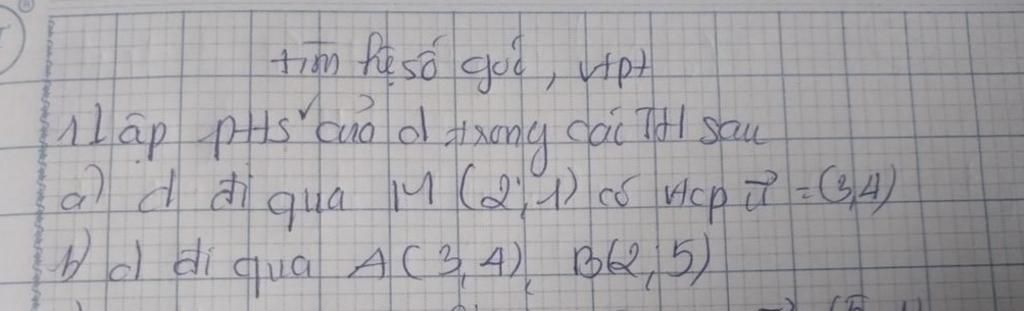 tìm hệ số góc, vtpt
1 Lập ptts của d trong các TH sau
a) d đi qua M (2; 1) có vtcp u = (3,4)
b) d đi qua A (3, 4), B(2; 5)